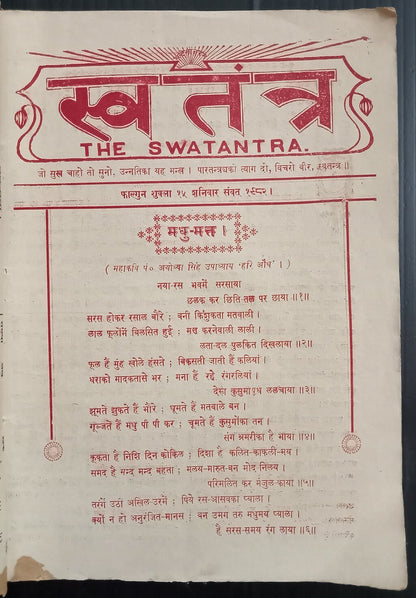 स्वतंत्र
THE SWATANTRA.
जो सुख चाहो तो सुनो, उन्नतिका यह मन्त्र । पारतन्त्र्यको त्याग दो, बिचरो बीर, स्वतन्त्र ॥
फाल्गुन शुक्ला १५ शनिवार संवत १९८२ ।
मधु-मत्त ।
( महाकवि पं० अयोध्या सिंह उपाध्याय 'हरि औध' । )
नया-रस भवमें सरसाया
छलक कर छिति-तल पर छाया ॥१॥
सरस होकर रसाल बौरे ; बनी किंशुकता मतवाली ।
लाल फूलोंमें बिलसित हुई ; मत्त करनेवाली लाली ।
लता-दल पुलकित दिखलाया ॥२॥
फूल हैं मुंह खोले हंसते ; बिकसती जाती हैं कलियां ।
धराको मादकतासे भर ; मना हैं रहे रंगरलियां ।
देख कुसुमायुध ललचाया ॥३॥
झूमते झुकते हैं भौंरे ; घूमते हैं मतवाले बन ।
गूंजते हैं मधु पी पी कर ; चूमते हैं कुसुमोंका तन ।
संग भ्रमरीका है भाया ॥४॥
कूकता है निशि दिन कोकिल ; दिशा है कलित-काकली-मय ।
समद है मन्द मन्द बहता ; मलय-मारुत-बन मोद निलय ।
परिमलित कर मंजुल-काया ॥५॥
तरंगें उठीं अखिल-उरमें ; पिये रस-आसवका प्याला ।
क्यों न हो अनुरंजित-मानस ; बन उमग तरु मधुमय प्याला ।
है सरस-समय रंग लाया ॥६॥